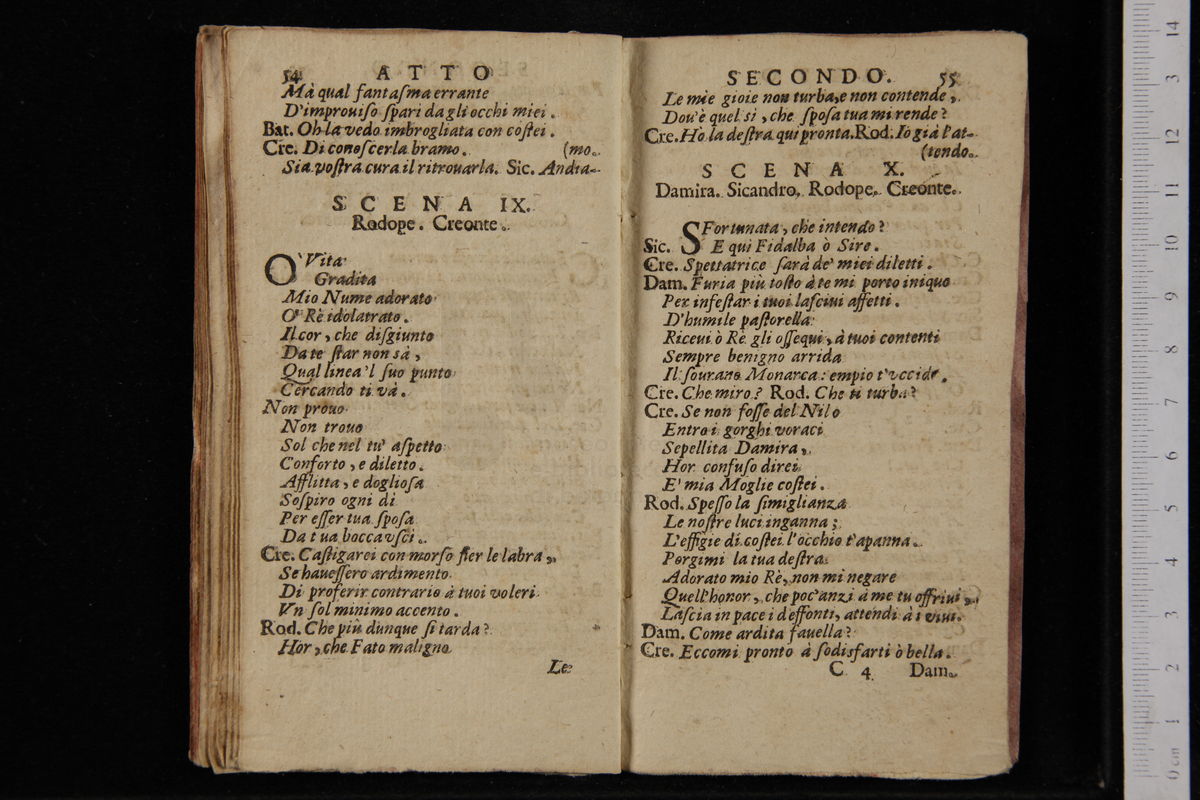 54 ATTO
Mà qual fantaſma errante
D'improuiſo ſpari da gli occhi miei.
Bat. Oh la vedo imbrogliata con coſtei.
Cre. Di conoſcerla bramo. (mo.
Sia voſtra cura il ritrouarla. Sic. Andia-
SCENA IX.
Rodope. Creonte.
O' Vita
Gradita
Mio Nume adorato
O' Rè idolatrato.
Il cor, che diſgiunto
Da te ſtar non sà,
Qual linea 'l ſuo punto
Cercando ti và.
Non prouo
Non trouo
Sol che nel tu' aſpetto
Conforto, e diletto.
Afflitta, e doglioſa
Soſpiro ogni di
Per eſſer tua ſpoſa
Da tua bocca vſci.
Cre. Caſtigarei con morſo fier le labra,
Se haueſſero ardimento
Di proferir contrario à tuoi voleri
Vn ſol minimo accento.
Rod. Che più dunque ſi tarda?
Hor, che Fato maligno
Le
SECONDO. 55
Le mie gioie non turba, e non contende,
Dou'è quel si, che ſpoſa tua mi rende?
Cre. Ho la deſtra qui pronta. Rod. Io già l'at-
(tendo.
SCENA X.
Damira. Sicandro. Rodope. Creonte.
SFortunata, che intendo?
Sic. E qui Fidalba ò Sire.
Cre. Spettatrice ſarà de' miei diletti.
Dam. Furia più toſto à te mi porto iniquo
Per infeſtar i tuoi laſciui affetti.
D'humile paſtorella
Riceui ò Rè gli oſſequi, à tuoi contenti
Sempre benigno arrida
Il ſourano Monarca: empio t'vccida.
Cre. Che miro? Rod. Che ti turba?
Cre. Se non foſſe del Nilo
Entro i gorghi voraci
Sepellita Damira,
Hor confuſo direi
E' mia Moglie coſtei.
Rod. Speſſo la ſimiglianza
Le noſtre luci inganna;
L'effigie di coſtei l'occhio t'apanna.
Porgimi la tua deſtra
Adorato mio Rè, non mi negare
Quell'honor, che poc'anzi à me tu offriui,
Laſcia in pace i deffonti, attendi à i viui.
Dam. Come ardita fauella?
Cre. Eccomi pronto à ſodisfarti ò bella.
C 4 Dam.